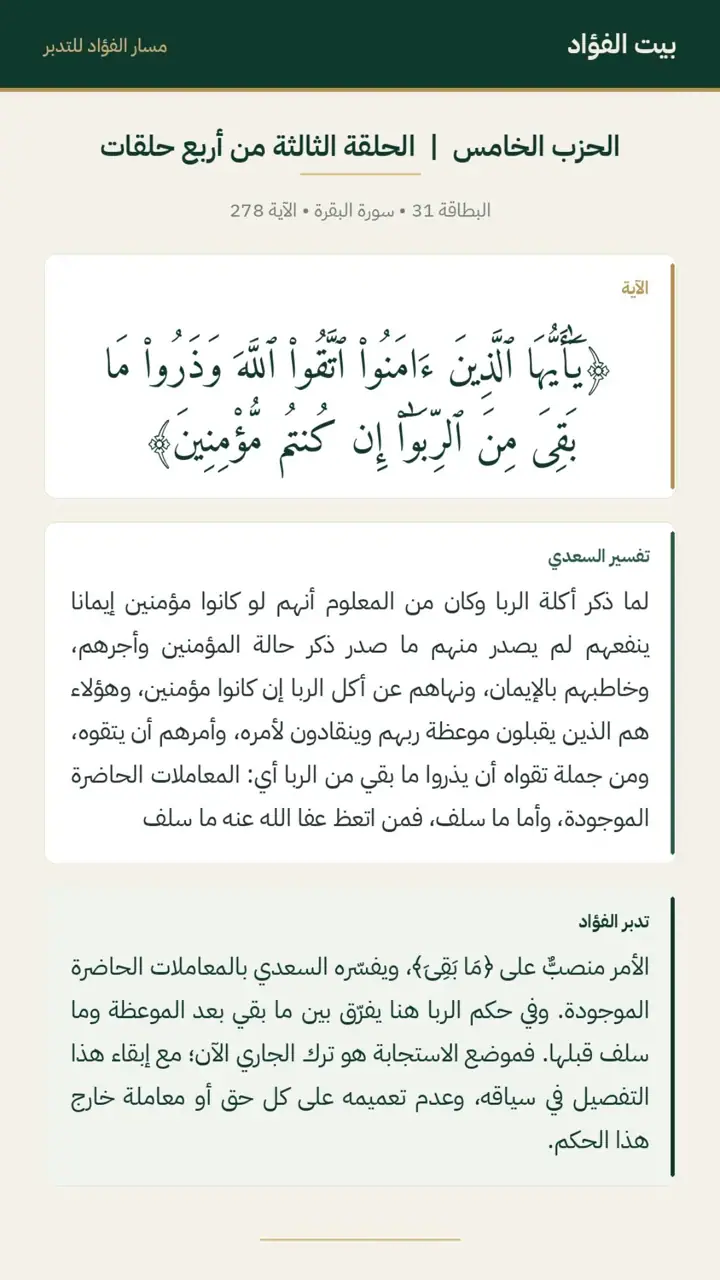 بيت الفؤاد
مسار الفؤاد للتدبر
الحزب الخامس | الحلقة الثالثة من أربع حلقات
البطاقة 31 • سورة البقرة • الآية 278
الآية
﴿يَٰٓأَيُّهَا ٱلَّذِينَ ءَامَنُوا۟ ٱتَّقُوا۟ ٱللَّهَ وَذَرُوا۟ مَا
بَقِىَ مِنَ ٱلرِّبَوٰٓا۟ إِن كُنتُم مُّؤْمِنِينَ﴾
تفسير السعدي
لما ذكر أكلة الربا وكان من المعلوم أنهم لو كانوا مؤمنين إيمانا
ينفعهم لم يصدر منهم ما صدر ذكر حالة المؤمنين وأجرهم،
وخاطبهم بالإيمان، ونهاهم عن أكل الربا إن كانوا مؤمنين، وهؤلاء
هم الذين يقبلون موعظة ربهم وينقادون لأمره، وأمرهم أن يتقوه،
ومن جملة تقواه أن يذروا ما بقي من الربا أي: المعاملات الحاضرة
الموجودة، وأما ما سلف، فمن اتعظ عفا الله عنه ما سلف
تدبر الفؤاد
الأمر منصبٌّ على ﴿مَا بَقِىَ﴾، ويفسّره السعدي بالمعاملات الحاضرة
الموجودة. وفي حكم الربا هنا يفرّق بين ما بقي بعد الموعظة وما
سلف قبلها. فموضع الاستجابة هو ترك الجاري الآن؛ مع إبقاء هذا
التفصيل في سياقه، وعدم تعميمه على كل حق أو معاملة خارج
هذا الحكم.